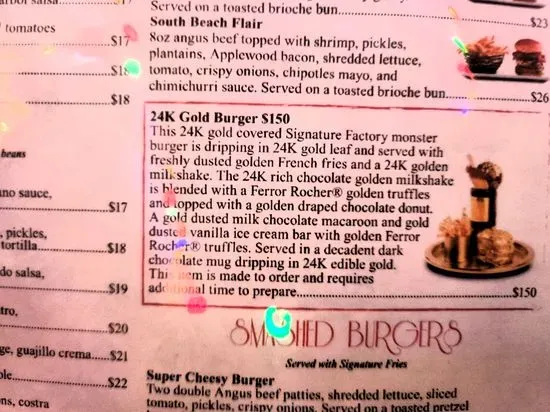 rbor salsa,
tomatoes
$17
$18
$18
beans
no sauce,
$17
, pickles,
tortilla
$18
do salsa,
$19
tro,
$20
ge, guajillo crema
$21
ole
$22
ns, costra
Served on a toasted brioche bun
$23
South Beach Flair
8oz angus beef topped with shrimp, pickles,
plantains, Applewood bacon, shredded lettuce,
tomato, crispy onions, chipotles mayo, and
chimichurri sauce. Served on a toasted brioche bun
$26
24K Gold Burger $150
This 24K gold covered Signature Factory monster
burger is dripping in 24K gold leaf and served with
freshly dusted golden French fries and a 24K golden
milkshake. The 24K rich chocolate golden milkshake
is blended with a Ferror Rocher® golden truffles
and topped with a golden draped chocolate donut.
A gold dusted milk chocolate macaroon and gold
dusted vanilla ice cream bar with golden Ferror
Rocher® truffles. Served in a decadent dark
chocolate mug dripping in 24K edible gold.
This item is made to order and requires
additional time to prepare
$150
SMASHED BURGERS
Served with Signature Fries
Super Cheesy Burger
Two double Angus beef patties, shredded lettuce, sliced
tomato, pickles, crispy onions. Served on a toasted pretzel